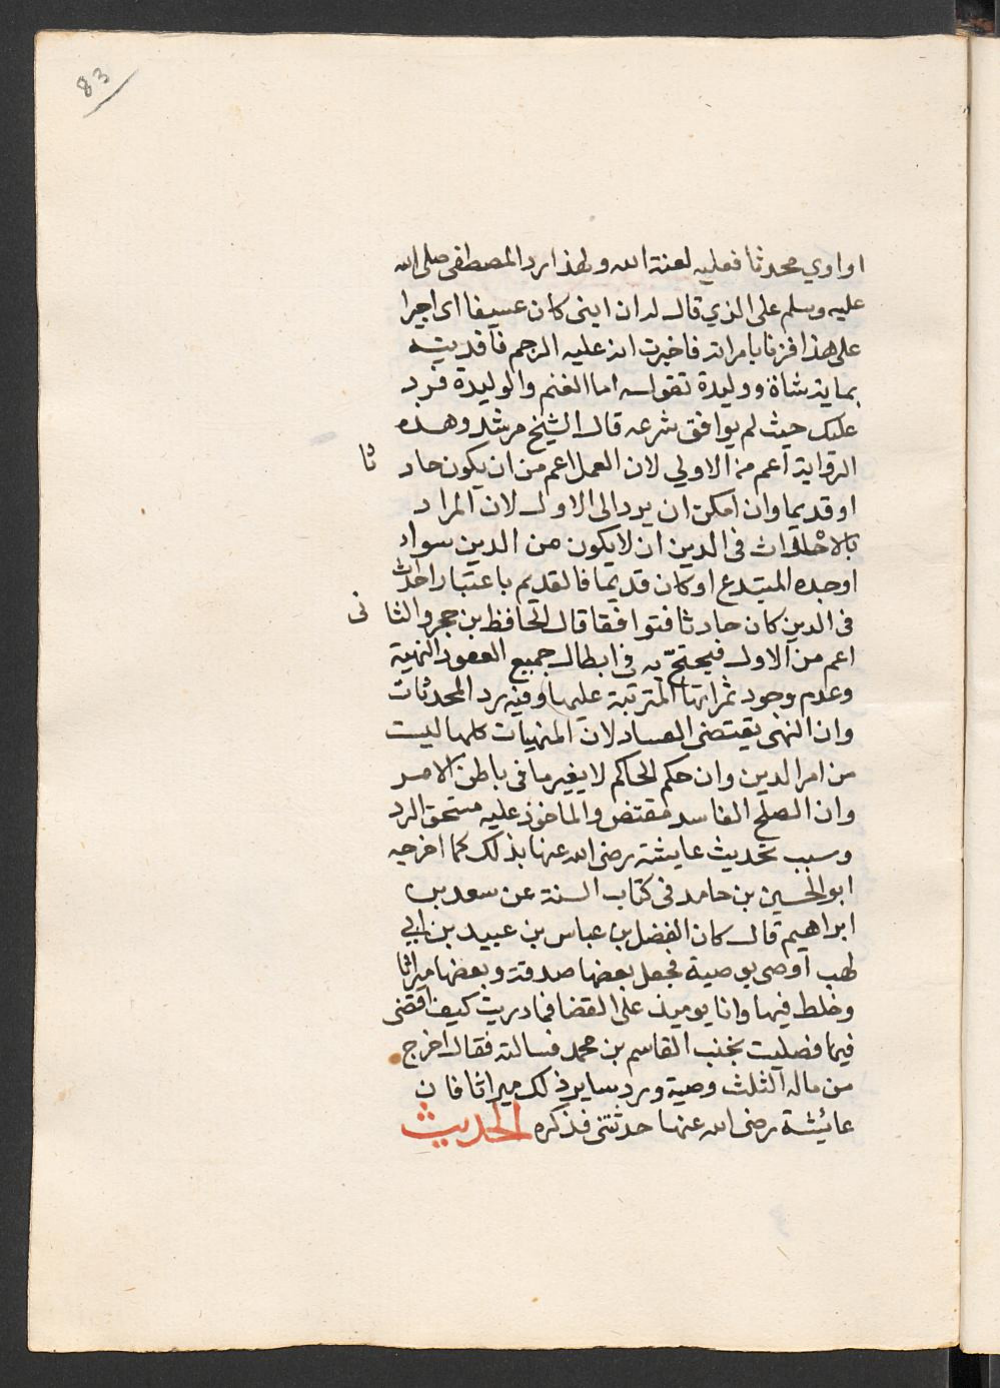 83
او اوي محدثا فعليه لعنة الله ولهذا رد المصطفى صلى الله
عليه وسلم على الذي قال له ان ابنى كان عسيفا اى اجيرا
على هذا فزنا بامراته فاخبرت ان عليه الرجم فافديته
بماية شاة ووليدة تقوله اما الغنم والوليدة فرد
عليك حيث لم يوافق شرعه قال الشيخ مرشد وهذه
الرواية اعم من الاولي لان العمل اعم من ان يكون حاد ثا
او قديما وان امكن ان يرد الى الاول لان المراد
بالاحداث فى الدين ان لا يكون من الدين سواء
اوجده المبتدع او كان قديما فالقديم باعتبار احداث
فى الدين كان حادثا فتوافقا قال الحافظ بن حجر والثا نى
اعم من الاول فيحتج به في ابطال جميع العقود المنهية
وعدم وجود ثمراتها المترتبة عليها وفيه رد المحدثات
وان النهى يقتضى الفساد لان المنهيات كلها ليست
من امر الدين وان حكم الحاكم لا يغير ما فى باطن الامر
وان الصلح الفاسد مقتض والماخوذ عليه مستحق الرد
وسبب تحديث عايشة رضى الله عنها بذلك كما اخرجه
ابو الحسين بن حامد فى كتاب السنة عن سعد بن
ابراهيم قال كان الفضل بن عباس بن عبيد بن ابي
لهب اوصى بوصية فجعل بعضها صدقة وبعضها ميراثا
وخلط فيها وانا يوميذ على القضا فما دريت كيف اقضى
فيها فصليت بجنب القاسم بن محمد فسالته فقال اخرج
من ماله الثلث وصية ورد ساير ذلك ميراثا فان
عائشة رضى الله عنها حدثتنى فذكره الحديث